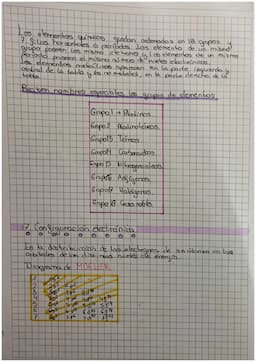 Los elementos químicos quedan ordenados en 18 grupos y
7 filas horizontales o períodos. Los elementos de un mismo
grupo poseen los mismos electrones y los elementos de un mismo
período poseen el mismo número de niveles electrónicos.
Los elementos metálicos aparecen en la parte izquierda y
central de la tabla y los no metales, en la parte derecha de la
tabla.
Reciben nombres especiales los grupos de elementos:
Grupo 1 → Alcalinos
Grupo 2 Alcalinotérreos
Grupo 13 Térreos
Grupo 14 Carbonoideos
Grupo 15 Nitrogenoideos
Grupo 16 Anfígenos
Grupo 17 Halógenos
Grupo 18 Gases nobles
7. Configuración electrónica
Es la distribución de los electrones de un átomo en los
orbitales de los distintos niveles de energía.
Diagrama de MOELLER